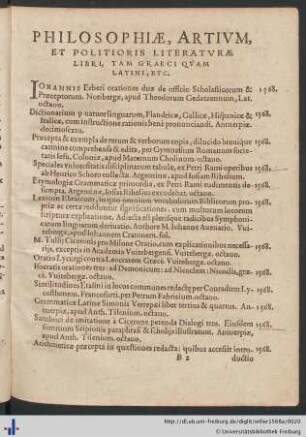 PHILOSOPHIÆ, ARTIVM,
ET POLITIORIS LITERATVRÆ
LIBRI, TAM GRAECI QVAM
LATINI, ETC.
IOHANNIS Erberi orationes duæ de officio Scholasticorum & 1568.
Præceptorum. Noribergæ, apud Theodorum Lat.
octauo.
Dictionarium 4 natuor linguarum, Flandricæ, Gallicæ, Hispanicæ & 1568.
Italicæ, cum instructione rationis benè pronunciandi. Antuerpiæ.
decimosexto.
Præcepta & exempla de rerum & verborum copia, dilucido breuique 1568.
carmine comprehensa & edita, per Gymnasium Romanum societatis
Iesu. Coloniæ, apud Maternum Cholinum. octauo.
Speciales vniuersitatis disciplinarum tabulæ, ex Petri Rami operibus 1568.
ab Henrico Schoro collectæ. Argentinæ, apud Iosiam Rihelium.
Etymologia Grammatica primoridia, ex Petri Rami rudimentis desumpta. 1568.
Argentinæ, Iosias Rihelius excudebat. octauo.
Lexicon Ebraicum, in quo omnium vocabulorum Biblicorum propriæ 1568.
ac certæ redduntur significationes, cum multorum locorum
Scripturæ explicatione. Adiecta est plerisque radicibus
earum linguarum deriuatio. Authore M. Iohanne Auenario. Vuitebergæ,
apud Iohannem Cratonem. fol.
M. Tullij Ciceronis pro Milone Oratio, cum explicationibus necessarijs, 1568.
excepta in Academia Vuitebergensi. Vuitebergæ. octauo.
Oratio Lycurgi contra Leocratem Græcè. Vuitebergæ. octauo.
Isocratis orationes tres: ad Demonicum: ad Nicoclem: Nicoclis, græcè. 1568.
Vuitebergæ. octauo.
Similitudines Erasmi in locos communes redactæ per Conradum Ly- 1568.
costhenem. Francofurti, per Petrum Fabricium. octauo.
Grammaticæ Latinæ Simonis Verepæi liber tertius & quartus. Antuerpiæ, 1568.
apud Anth. Tilenium. octauo.
Sambuci de imitatione à Cicerone petenda Dialogi tres. Eiusdem 1568.
somnium Scipionis paraphrasi & scholijs illustratum. Antuerpiæ,
apud Anth. Tilenium. octauo.
Arithmeticæ præcepta in quæstiones redacta: quibus accessit intro- 1568.
B 2 ductio
http://dl.ub.uni-freiburg.de/diglit/weller1568a/0020
© Universitätsbibliothek Freiburg